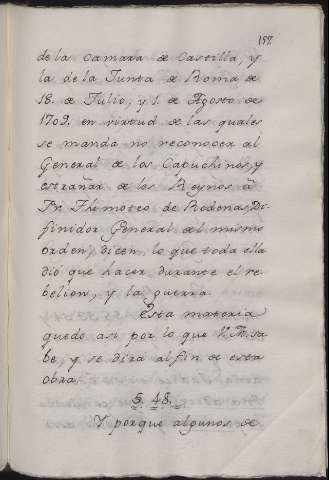 157.
de la Camara de Castilla, y
la de la Junta de Roma de
18. de Julio, y 1. de Agosto de
1709. en virtud de las quales
se manda no reconocer al
General de los Capuchinos, y
estrañar de los Reynos â
Fr. Thimoteo de Rodena, Di-
finidor General del mismo
orden; dicen, lo que toda ella
dió que hacer durante el re-
belion, y la guerra.
Esta materia
quedo asi por lo que V. M. sa-
be, y se dira al fin de esta
obra.
§. 48.
Y porque algunos de